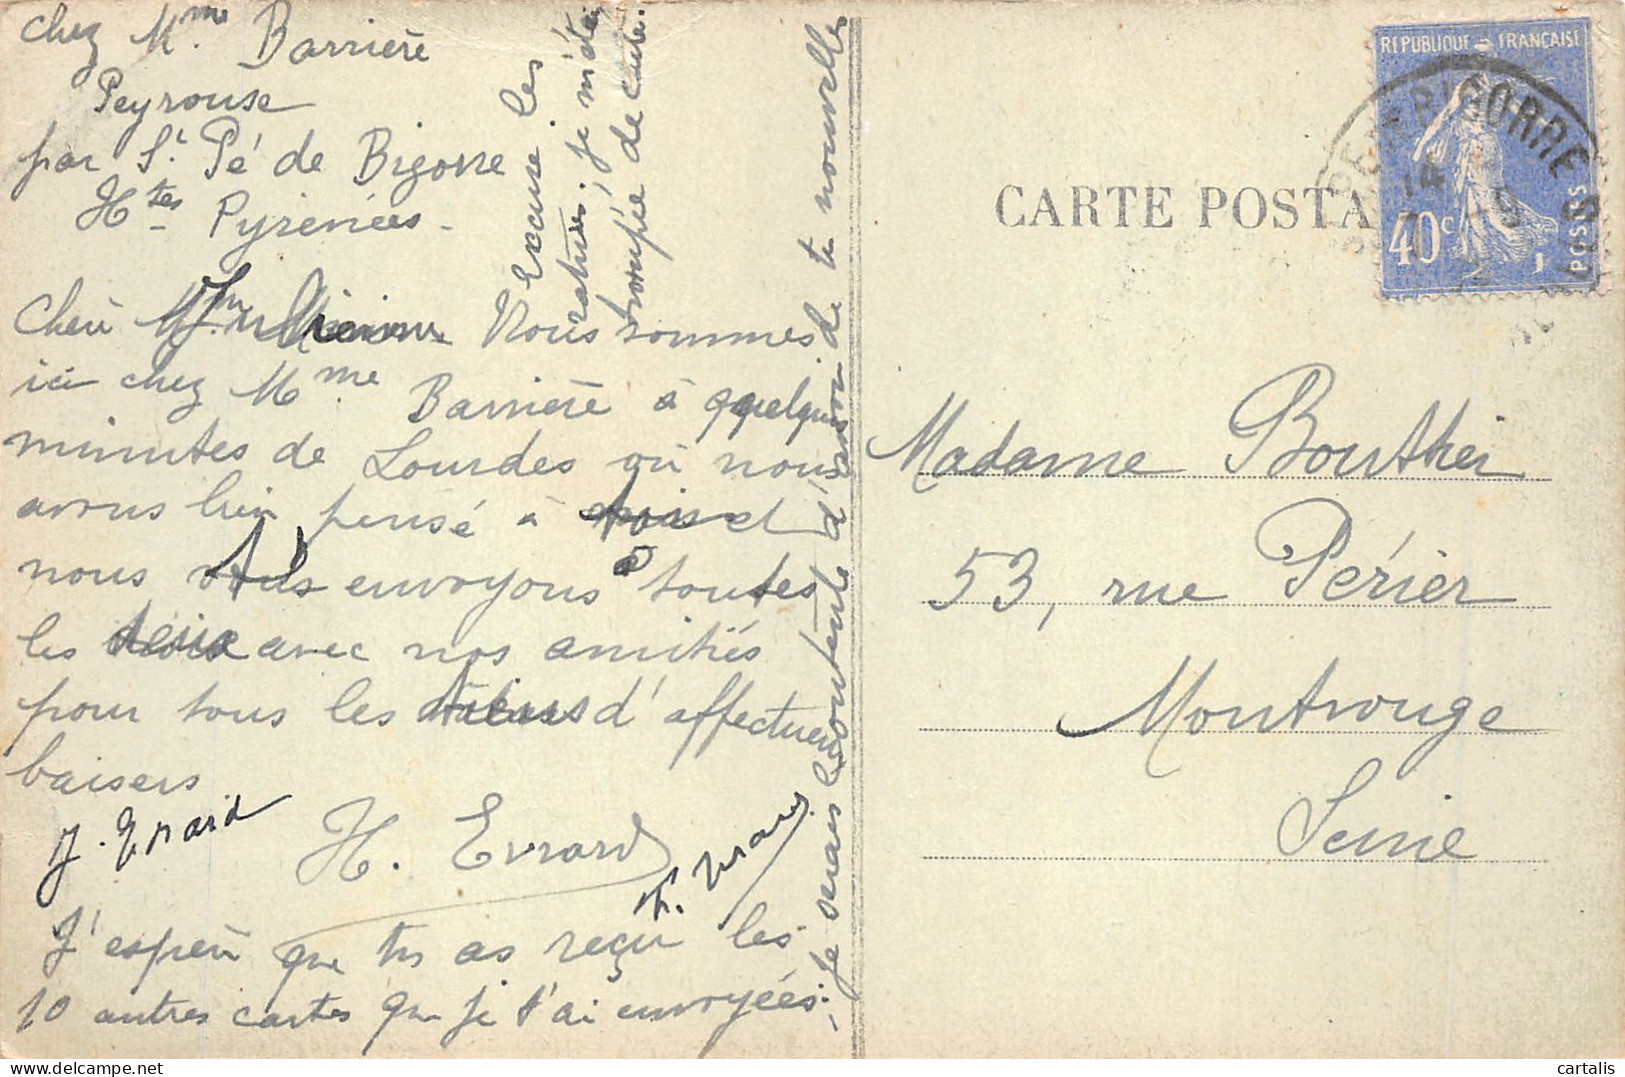 chez Mme. Barrière
Peyrouse
par St. Pé de Bigorre
Htes Pyrénées.
Excuse les
ratures, je m'étais
trompée de carte.
Chère Nous sommes
ici chez Mme. Barrière à quelques
minutes de Lourdes où nous
avons bien pensé à toi et
nous envoyons à toutes
les deux avec nos amitiés
pour tous les d'affectueux
baisers
J. Evrard
H. Evrard
J'espère que tu as reçu les
10 autres cartes que je t'ai envoyées.
Je serais contente d'avoir de te nouvelles
CARTE POSTA
REPUBLIQUE FRANÇAISE
40c
POSTES
BIGORRE
14
Madame Bouthier
53, rue Périer
Montrouge
Seine
cartalis